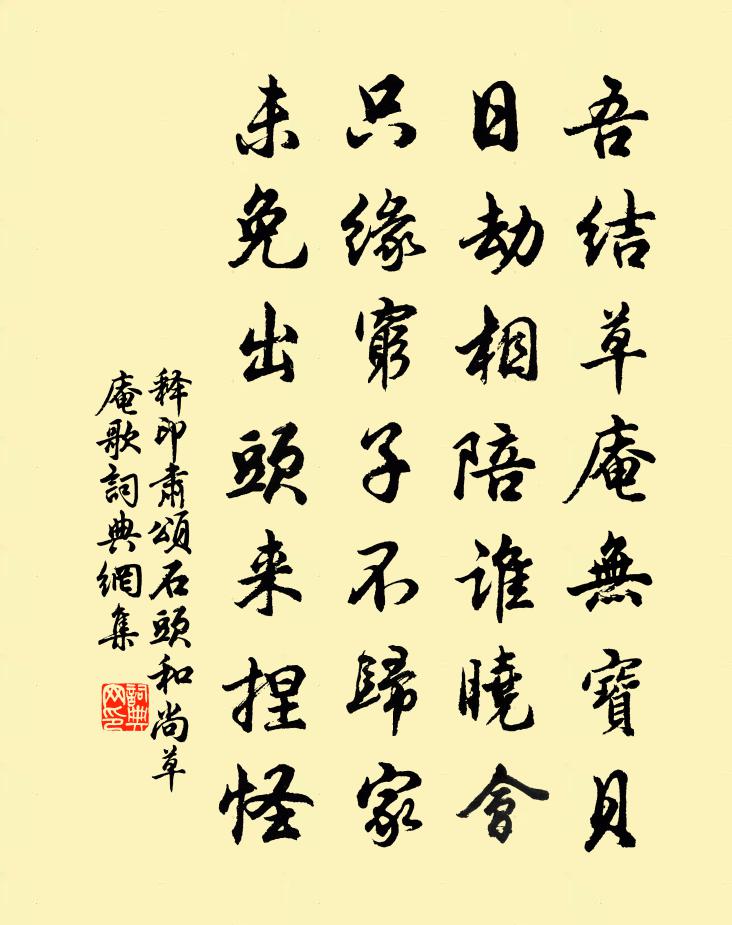 吾结草庵無寶貝
日劫相陪誰曉會
只缘窮子不歸家
未免出頭来捏怪
释印肃頌石頭和尚草
庵歌詞典網集
詞典网印